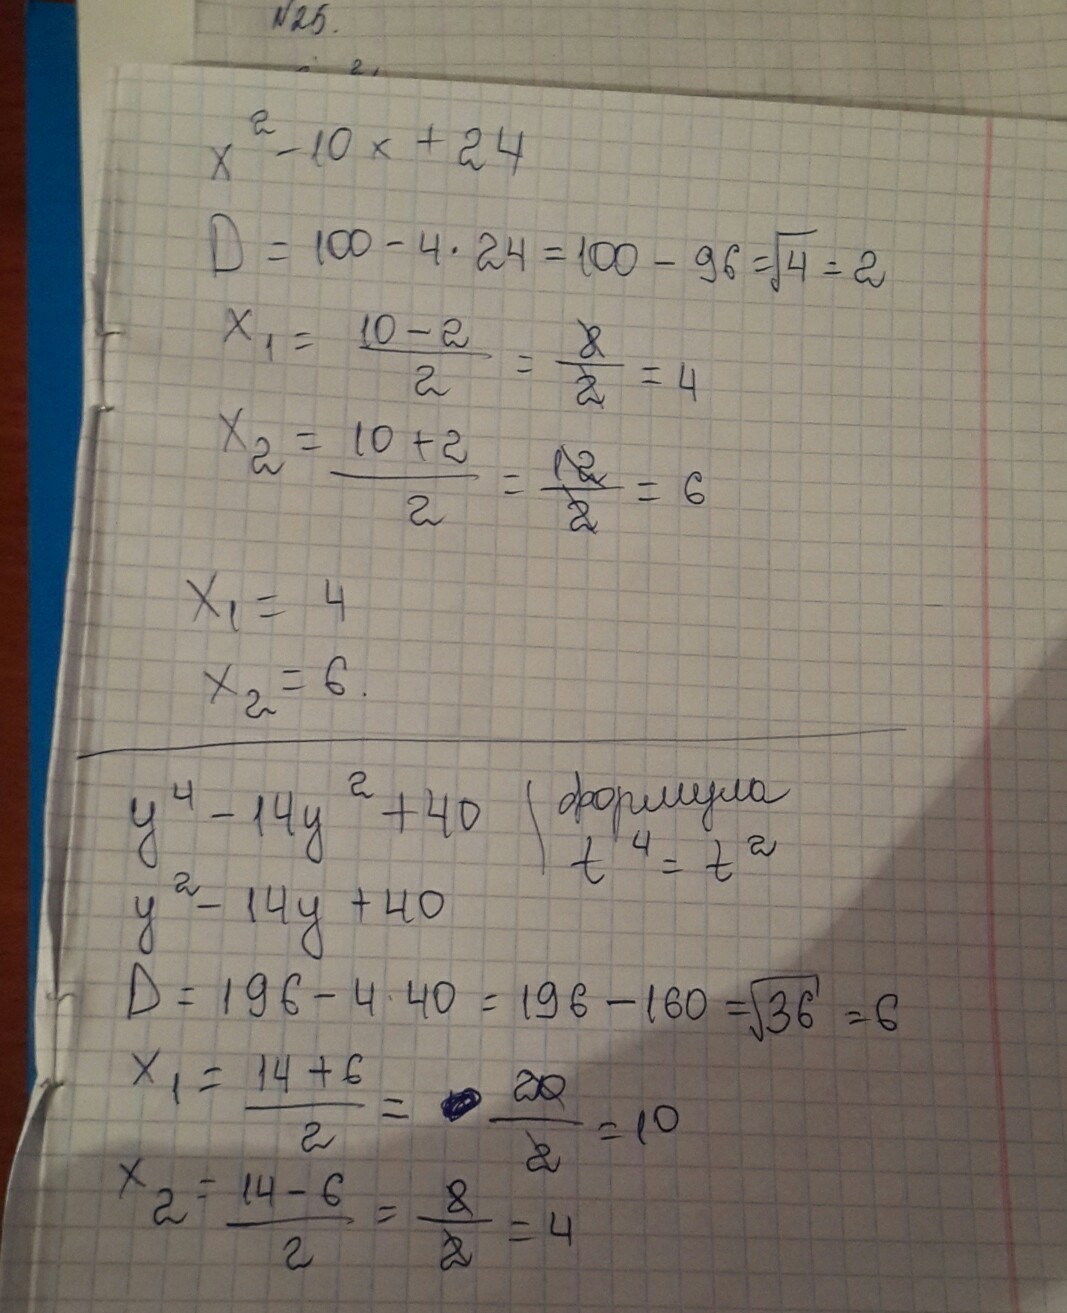 №25.
x² - 10x + 24
D = 100 - 4 · 24 = 100 - 96 = √4 = 2
x₁ = (10 - 2)/2 = 8/2 = 4
x₂ = (10 + 2)/2 = 12/2 = 6
x₁ = 4
x₂ = 6.
y⁴ - 14y² + 40 | формула
t⁴ = t²
y² - 14y + 40
D = 196 - 4 · 40 = 196 - 160 = √36 = 6
x₁ = (14 + 6)/2 = 20/2 = 10
x₂ = (14 - 6)/2 = 8/2 = 4